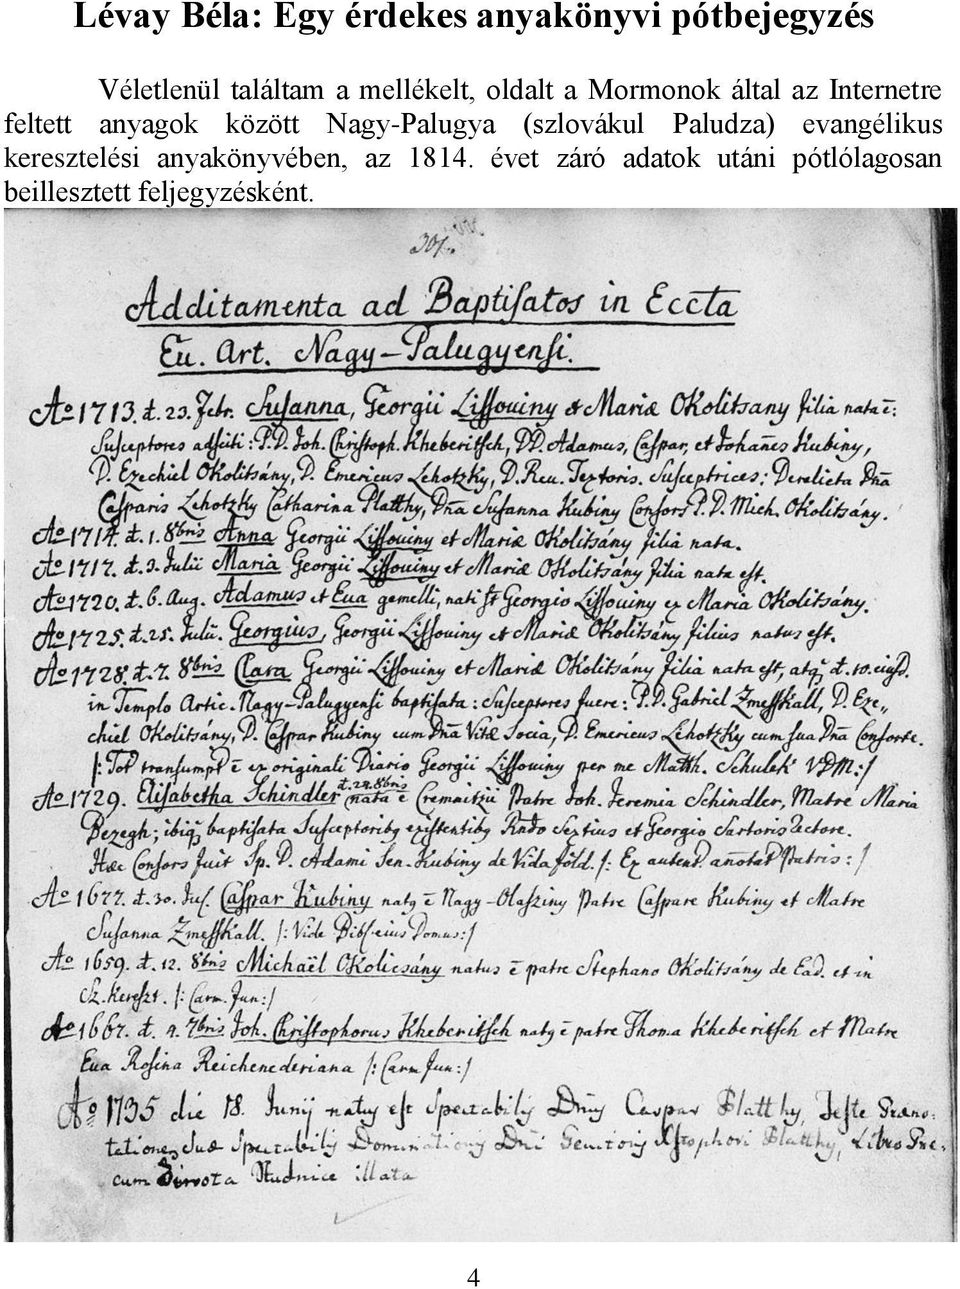 Lévay Béla: Egy érdekes anyakönyvi pótbejegyzés
Véletlenül találtam a mellékelt, oldalt a Mormonok által az Internetre
feltett anyagok között Nagy-Palugya (szlovákul Paludza) evangélikus
keresztelési anyakönyvében, az 1814. évet záró adatok utáni pótlólagosan
beillesztett feljegyzésként.
301.
Additamenta ad Baptisatos in Eccta
Eu. Art. Nagy-Palugyensi.
Ao 1713. d. 23. Febr. Susanna, Georgii Lissouiny et Mariæ Okolitsany filia nata ē:
Susceptores adsciti: P.D. Joh. Christoph. Kheberitsch, DD. Adamus, Caspar, et Johañes Kubiny,
D. Ezechiel Okolitsány, D. Emericus Lehotzky, D. Reu. Textoris. Susceptrices: Derelicta Dña
Casparis Lehotzky Catharina Platthy, Dña Susanna Kubiny Consors P.D. Mich. Okolitsány.
Ao 1714. d. 1. 8bris Anna Georgii Lissouiny et Mariæ Okolitsány filia nata.
Ao 1717. d. 3. Julii Maria Georgii Lissouiny et Mariæ Okolitsány filia nata est.
Ao 1720. d. 6. Aug. Adamus et Eua gemelli, nati st Georgio Lissouiny ex Maria Okolitsány.
Ao 1725. d. 25. Julii. Georgius, Georgii Lissouiny et Mariæ Okolitsány filius natus est.
Ao 1728. d. 7. 8bris Clara Georgii Lissouiny et Mariæ Okolitsány filia nata est, atq d. 10. eiusd.
in Templo Artic. Nagy-Palugyensi baptisata: Susceptores fuere: P.D. Gabriel Zmesskáll, D. Eze„
chiel Okolitsány, D. Caspar Kubiny cum Dña Vitæ Socia, D. Emericus Lehotzky cum sua Dña Consorte.
/: Tot transumpt ē ex originali Diario Georgii Lissouiny per me Matth. Schulek VDM:/
Ao 1729. Elisabetha Schindler d. 24. 8bris nata ē Cremnitzii Patre Joh. Jeremia Schindler, Matre Maria
Bezegh; ibiq baptisata Susceptoribq existentibq Rndo Sextius et Georgio Sartoris Rectore.
Hæc Consors fuit Sp. D. Adami Sen. Kubiny de Vidafold. /: Ex autent. anotat Patris:/
Ao 1677. d. 30. Caspar Kubiny natq ē Nagy-Olasziny Patre Caspare Kubiny et Matre
Susanna Zmesskall. /: Vide eius Domus:/
Ao 1659. d. 12. 8bris Michaël Okolicsány natus ē patre Stephano Okolitsány de Ead. et in
Sz. Kereszt. /: Carm. Jun:/
Ao 1667. d. 4. 7bris Joh. Christophorus Kheberitsch natq ē patre Thoma Kheberitsch et Matre
Eua Rosina Reichenederiana /: Carm Jun:/
Ao 1735 die 18. Junij natus est Spectabilis Dnus Caspar Platthy, Teste Præno-
tatione Suæ Spectabilis Dominationis Dni Genitoris Xstophori Platthy, Libro Pre-
cum illata
4